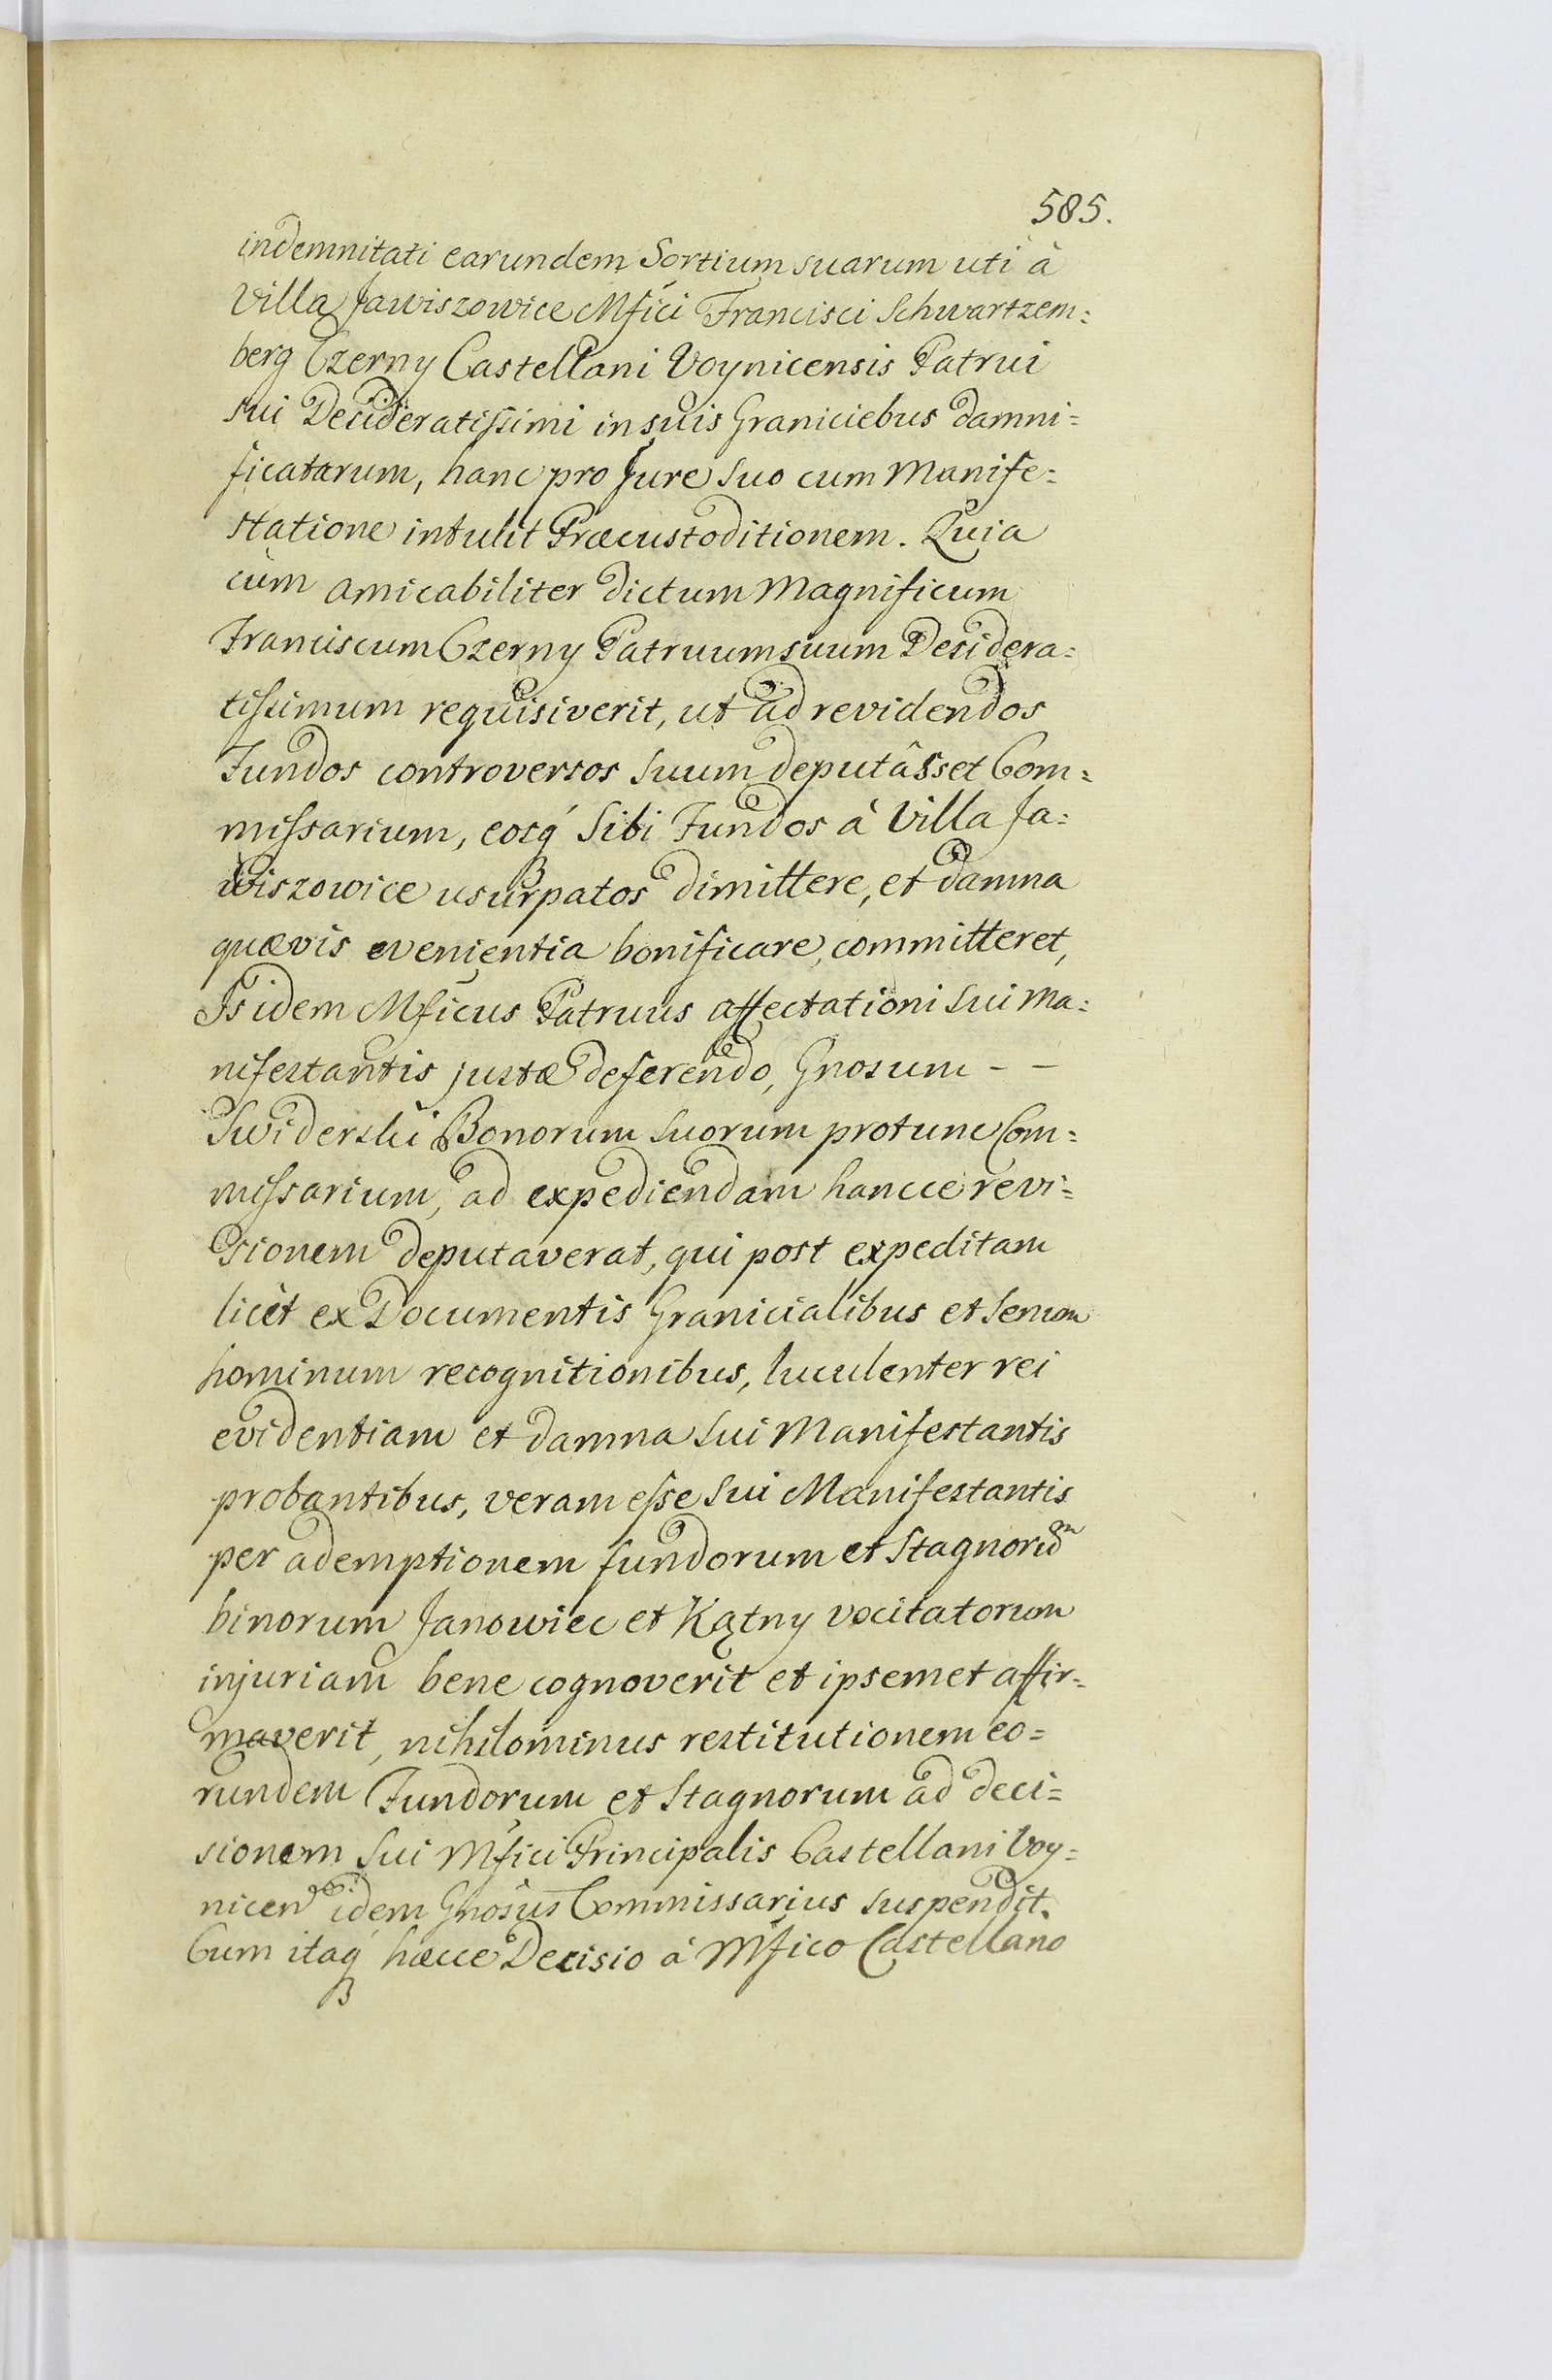 585.
indemnitati earundem Sortium suarum uti à
Villa Jawiszowice Mfici Francisci Schwartzem=
berg Czerny Castellani Voynicensis Patrui
sui Desideratissimi in suis Graniciebus damni=
ficatarum, hanc pro Jure suo cum Manife=
statione intulit Præcustoditionem. Quia
cùm amicabiliter dictum Magnificum
Franciscum Czerny Patruum suum Desidera=
tissimum requisiverit, ut ad revidendos
Fundos controversos suum deputâsset Com=
missarium, eosq́ sibi Fundos à Villa Ja=
wiszowice usurpatos dimittere, et damna
quævis evenientia bonificare, committeret,
Is idem Mficus Patruus affectationi sui Ma=
nifestantis justæ deferendo, Gnosum - -
Swiderski Bonorum suorum protunc Com=
missarium, ad expediendam hancce revi=
sionem deputaverat, qui post expeditam
licèt ex Documentis Granicialibus et senum
hominum recognitionibus, luculenter rei
evidentiam et damna sui Manifestantis
probantibus, veram esse sui Manifestantis
per ademptionem fundorum et Stagnorum
binorum Janowiec et Kątny vocitatorum
injuriam bene cognoverit et ipsemet affir=
maverit, nihilominus restitutionem eo=
rundem Fundorum et Stagnorum ad deci=
sionem sui Mfici Principalis Castellani Voy=
nicen idem Gnosus Commissarius suspendit.
Cum itaq́ hæcce Decisio à Mfico Castellano